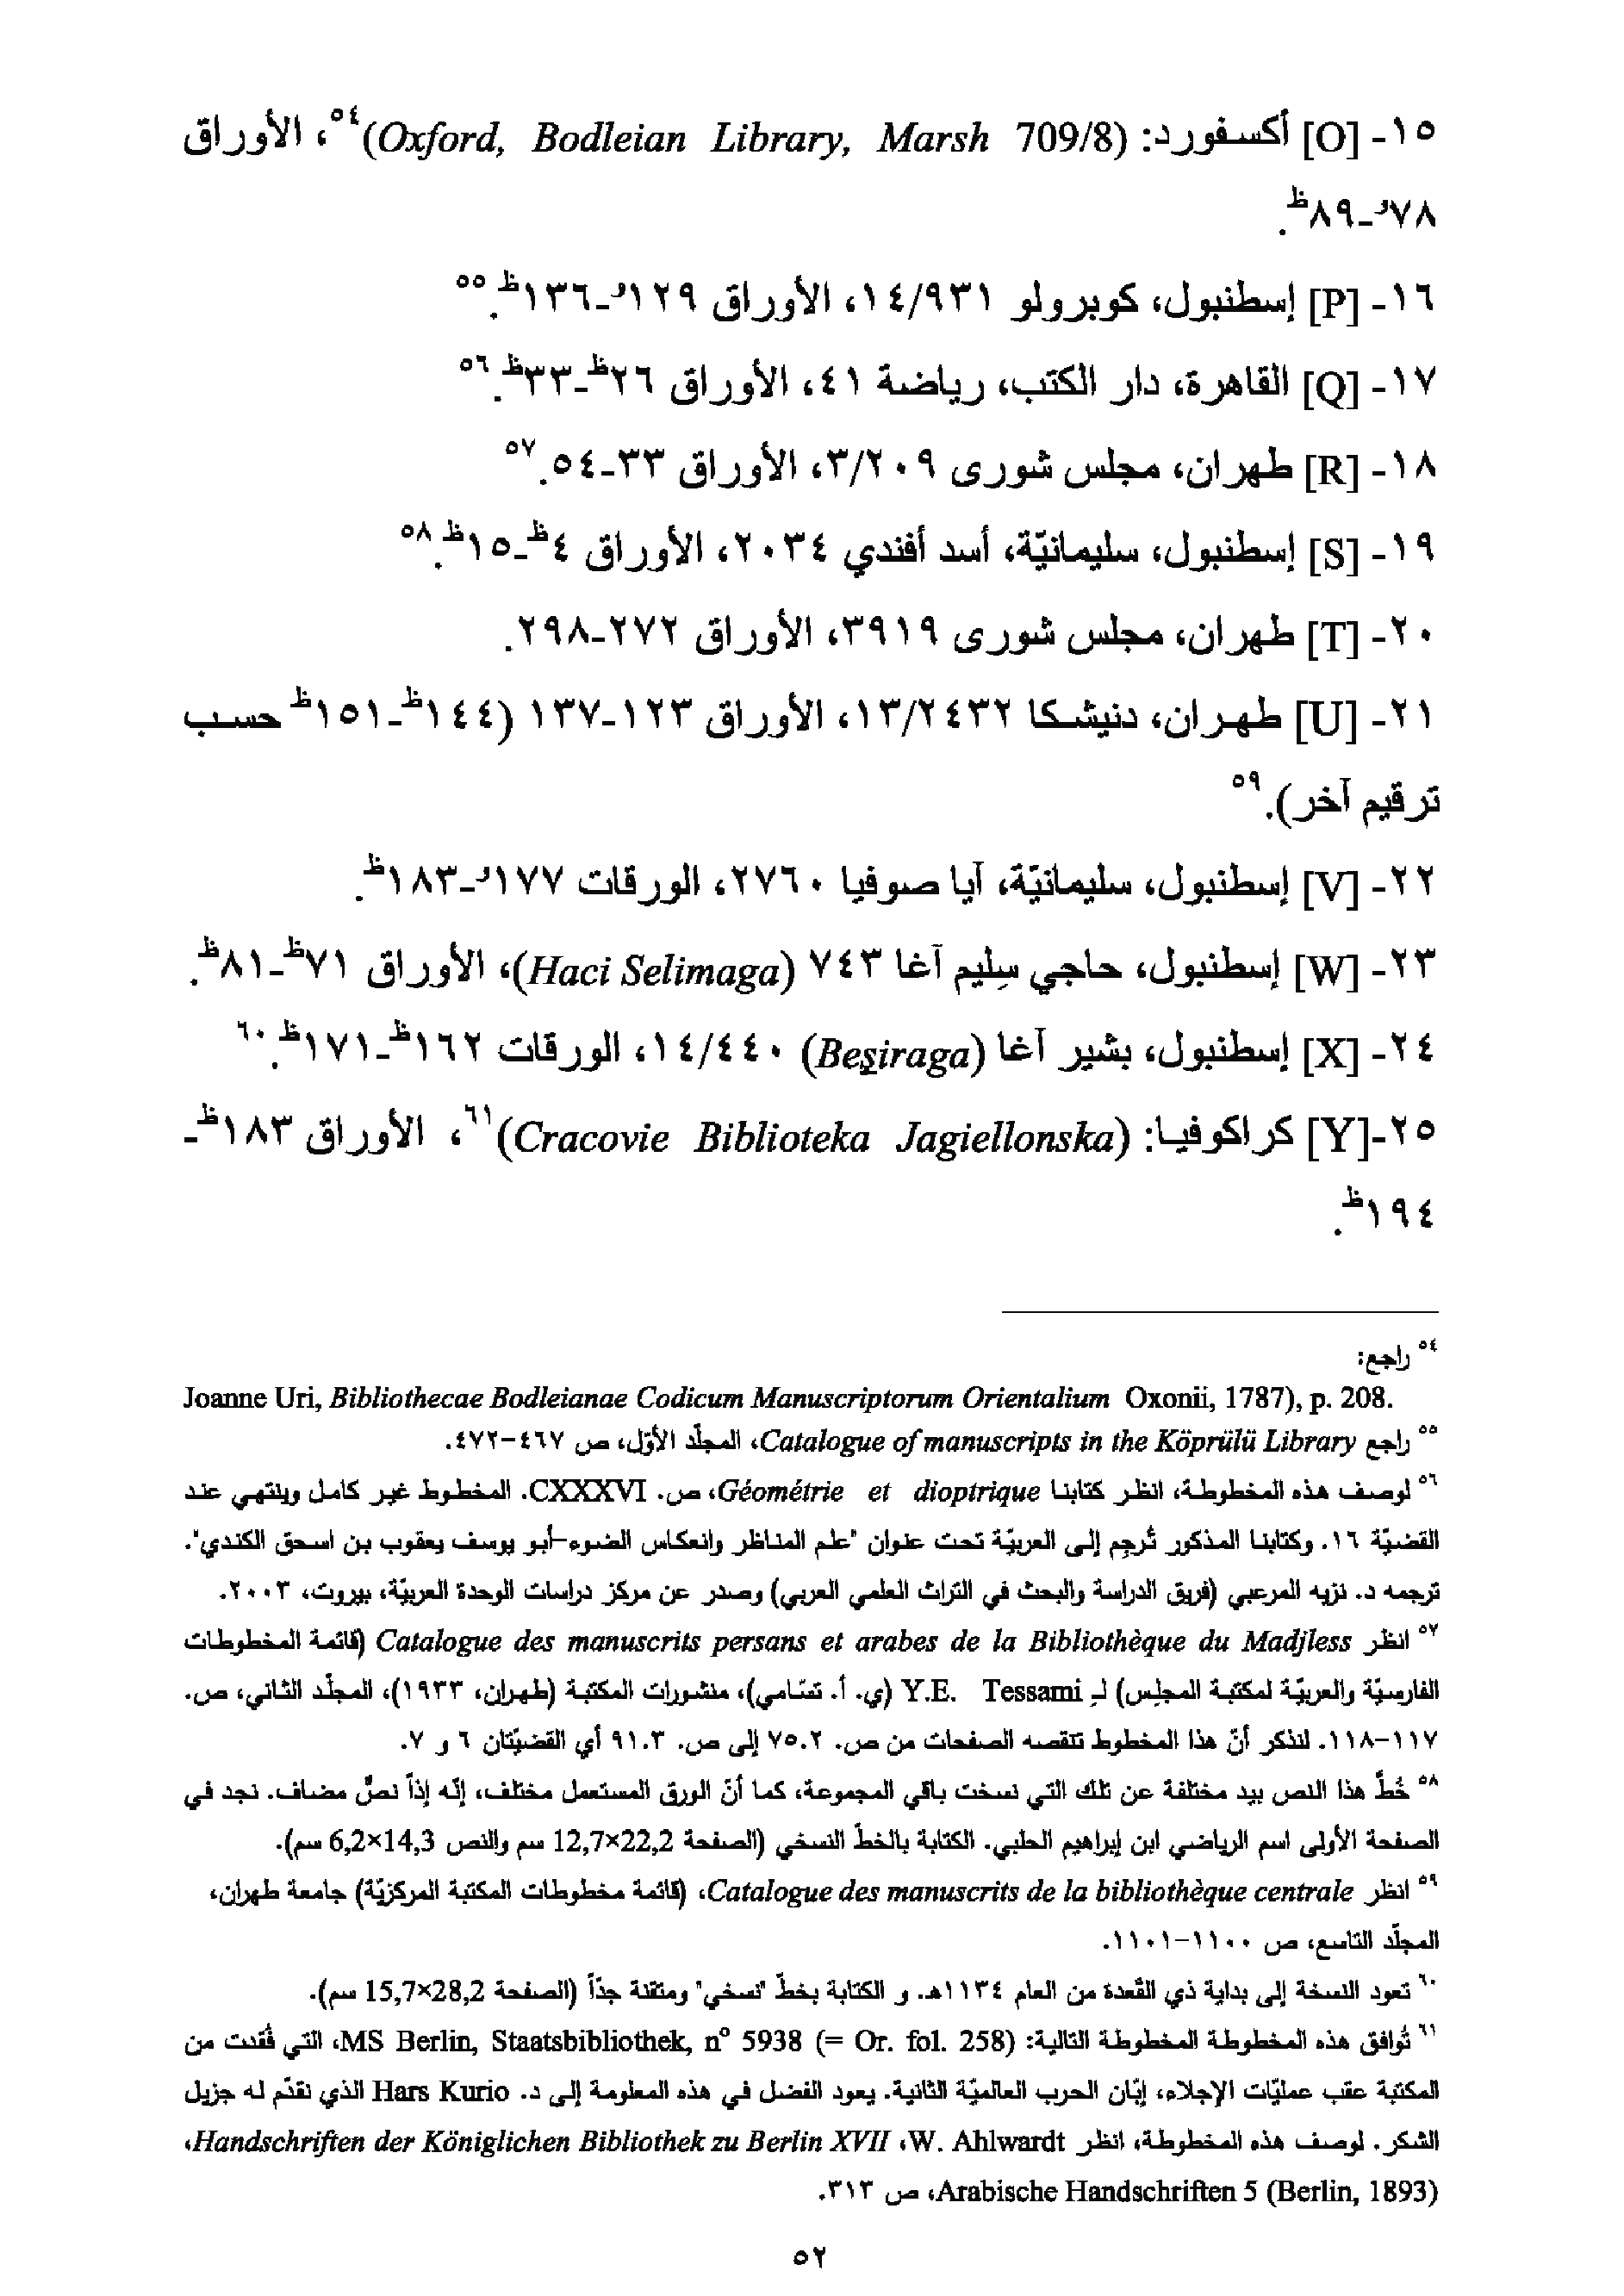 ١٥- [O] أكسفورد: (Oxford, Bodleian Library, Marsh 709/8)٥٤، الأوراق
٧٨و-٨٩ظ.
١٦- [P] إسطنبول، كوبرولو ١٤/٩٣١، الأوراق ١٢٩و-١٣٦ظ.٥٥
١٧- [Q] القاهرة، دار الكتب، رياضة ٤١، الأوراق ٢٦ظ-٣٣ظ.٥٦
١٨- [R] طهران، مجلس شورى ٣/٢٠٩، الأوراق ٣٣-٥٤.٥٧
١٩- [S] إسطنبول، سليمانيّة، أسد أفندي ٢٠٣٤، الأوراق ٤ظ-١٥ظ.٥٨
٢٠- [T] طهران، مجلس شورى ٣٩١٩، الأوراق ٢٧٢-٢٩٨.
٢١- [U] طهران، دنيشكا ١٣/٢٤٣٢، الأوراق ١٢٣-١٣٧ (١٤٤ظ-١٥١ظ حسب
ترقيم آخر).٥٩
٢٢- [V] إسطنبول، سليمانيّة، آيا صوفيا ٢٧٦٠، الورقات ١٧٧و-١٨٣ظ.
٢٣- [W] إسطنبول، حاجي سِليم آغا ٧٤٣ (Haci Selimaga)، الأوراق ٧١ظ-٨١ظ.
٢٤- [X] إسطنبول، بشير آغا (Beşiraga) ١٤/٤٤٠، الورقات ١٦٢ظ-١٧١ظ.٦٠
٢٥-[Y] كراكوفيا: (Cracovie Biblioteka Jagiellonska)٦١، الأوراق ١٨٣ظ-
١٩٤ظ.
٥٤ راجع:
Joanne Uri, Bibliothecae Bodleianae Codicum Manuscriptorum Orientalium Oxonii, 1787), p. 208.
٥٥ راجع Catalogue of manuscripts in the Köprülü Library، المجلّد الأوّل، ص ٤٦٧-٤٧٢.
٥٦ لوصف هذه المخطوطة، انظر كتابنا Géométrie et dioptrique، ص. CXXXVI. المخطوط غير كامل وينتهي عند
القضيّة ١٦. وكتابنا المذكور تُرجِم إلى العربيّة تحت عنوان "علم المناظر وانعكاس الضوء-أبو يوسف يعقوب بن اسحق الكندي".
ترجمه د. نزيه المرعبي (فريق الدراسة والبحث في التراث العلمي العربي) وصدر عن مركز دراسات الوحدة العربيّة، بيروت، ٢٠٠٣.
٥٧ انظر Catalogue des manuscrits persans et arabes de la Bibliothèque du Madjless (قائمة المخطوطات
الفارسيّة والعربيّة لمكتبة المجلِس) لـِ Y.E. Tessami (ي. أ. تسّامي)، منشورات المكتبة (طهران، ١٩٣٣)، المجلّد الثاني، ص.
١١٧-١١٨. لنذكر أنّ هذا المخطوط تنقصه الصفحات من ص. ٧٥.٢ إلى ص. ٩١.٣ أي القضيّتان ٦ و ٧.
٥٨ خُطَّ هذا النص بيد مختلفة عن تلك التي نسخت باقي المجموعة، كما أنّ الورق المستعمل مختلف، إنّه إذاً نصٌّ مضاف. نجد في
الصفحة الأولى اسم الرياضي ابن إبراهيم الحلبي. الكتابة بالخطّ النسخي (الصفحة 12,7×22,2 سم والنص 6,2×14,3 سم).
٥٩ انظر Catalogue des manuscrits de la bibliothèque centrale، (قائمة مخطوطات المكتبة المركزيّة) جامعة طهران،
المجلّد التاسع، ص ١١٠٠-١١٠١.
٦٠ تعود النسخة إلى بداية ذي القَعدة من العام ١١٣٤هـ. و الكتابة بخطّ "نسخي" ومتقنة جدّاً (الصفحة 15,7×28,2 سم).
٦١ تُوافق هذه المخطوطة المخطوطة التالية: MS Berlin, Staatsbibliothek, n° 5938 (= Or. fol. 258)، التي فُقدت من
المكتبة عقب عمليّات الإجلاء، إبّان الحرب العالميّة الثانية. يعود الفضل في هذه المعلومة إلى د. Hars Kurio الذي نقدّم له جزيل
الشكر. لوصف هذه المخطوطة، انظر W. Ahlwardt، Handschriften der Königlichen Bibliothek zu Berlin XVII،
Arabische Handschriften 5 (Berlin, 1893)، ص ٣١٣.
٥٢